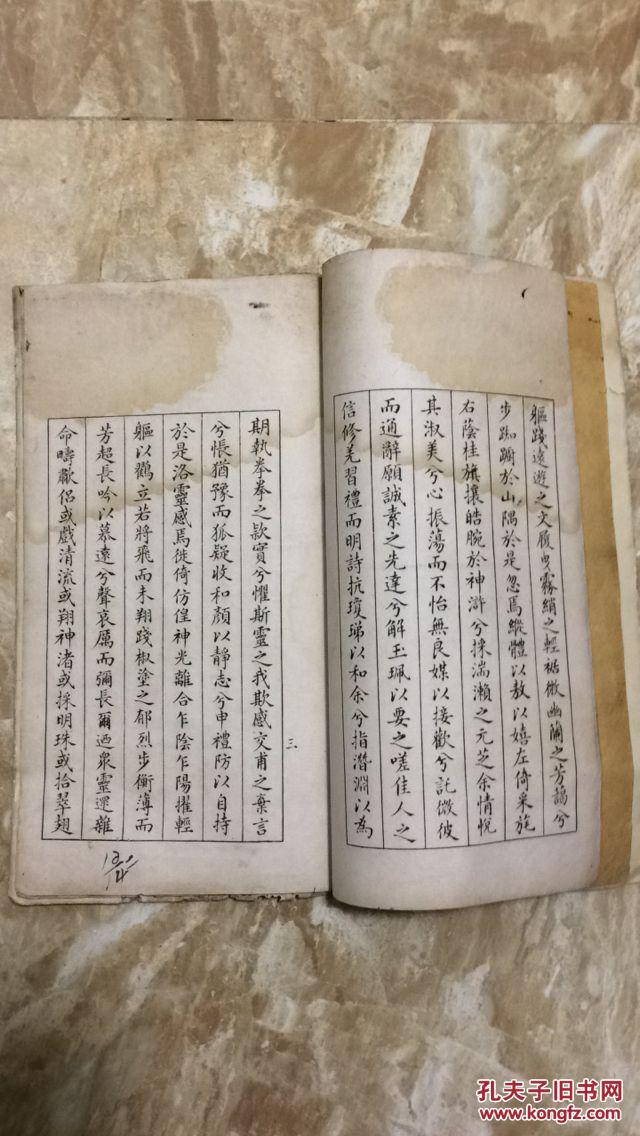 軀踐遠遊之文履曳霧綃之輕裾微幽蘭之芳藹兮
步踟躕於山隅於是忽焉縱體以敖以嬉左倚采旄
右蔭桂旗攘皓腕於神滸兮採湍瀨之元芝余情悅
其淑美兮心振蕩而不怡無良媒以接歡兮託微波
而通辭願誠素之先達兮解玉珮以要之嗟佳人之
信修羌習禮而明詩抗瓊珶以和余兮指潛淵以為
期執拳拳之款實兮懼斯靈之我欺感交甫之棄言
兮悵猶豫而狐疑收和顏以靜志兮申禮防以自持
於是洛靈感焉徙倚仿偟神光離合乍陰乍陽擢輕
軀以鸖立若將飛而未翔踐椒塗之郁烈步衡薄而
芳超長吟以慕遠兮聲哀厲而彌長爾迺眾靈遝雜
命疇歗侶或戲清流或翔神渚或採明珠或拾翠翅
三
孔夫子旧书网
www.kongfz.com